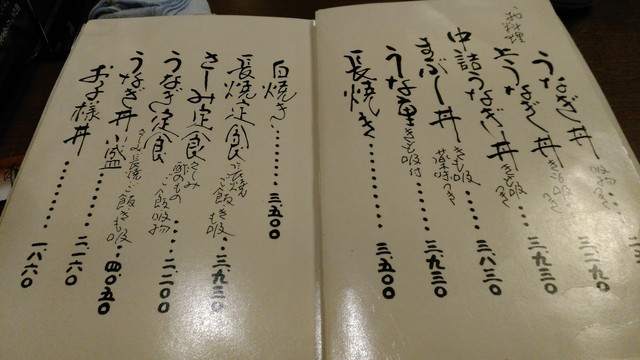 お料理
うなぎ丼 吸物
上うなぎ丼 きも吸つき 三、二九〇
中詰うなぎ丼 きも吸つき 三、九三〇
まぶし丼 きも吸 薬味つき 三、八三〇
うな重 きも吸付 三、九三〇
長焼き 三、五〇〇
白焼き 三、五〇〇
長焼定食 長焼 ご飯 きも吸 三、九三〇
さしみ定食 さしみ 酢のもの ご飯 吸物 二、二〇〇
うなぎ定食 さしみ 長焼 ご飯 きも吸 四、〇五〇
うなぎ丼小盛 二、一六〇
お子様丼 一、八六〇